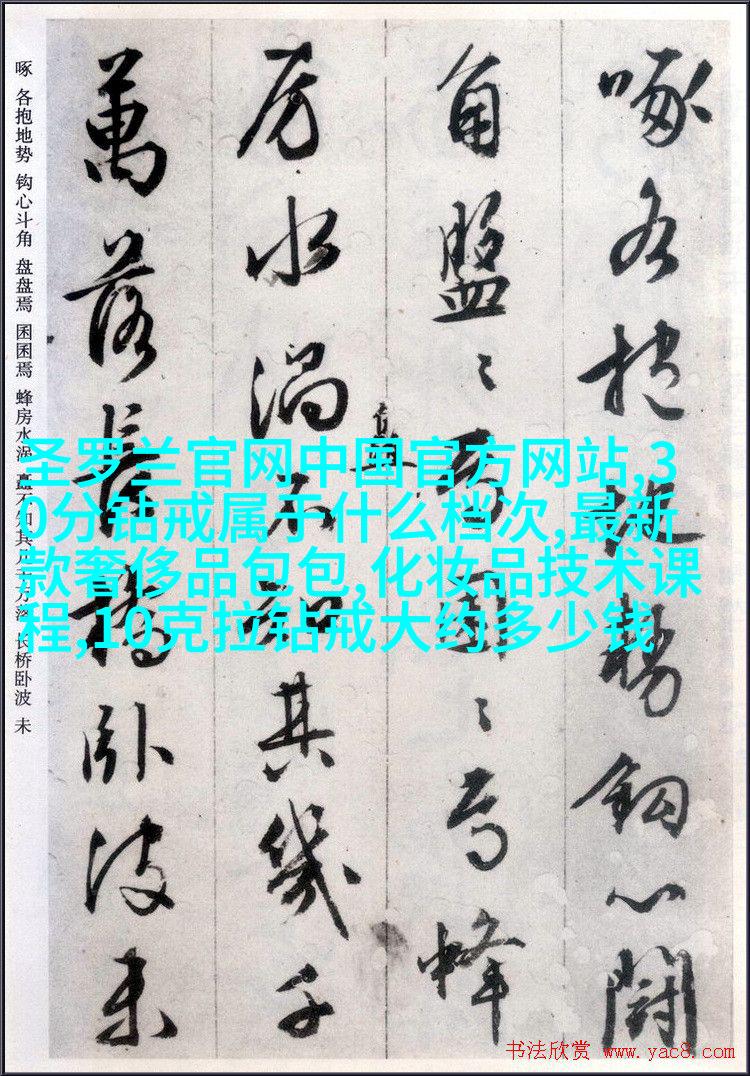 啄各抱地势钩心鬪
角盘〻焉囷〻焉蜂
房水涡矗不知其几千
万落长桥卧波未
啄 各抱地势 钩心斗角 盘盘焉 囷囷焉 蜂房水涡 矗不知其几千万落 长桥卧波 未
圣罗兰官网中国官方网站,3
0分钻戒属于什么档次,最新
款奢侈品包包,化妆品技术课
程,10克拉钻戒大约多少钱
书法欣赏 www.yac8.com